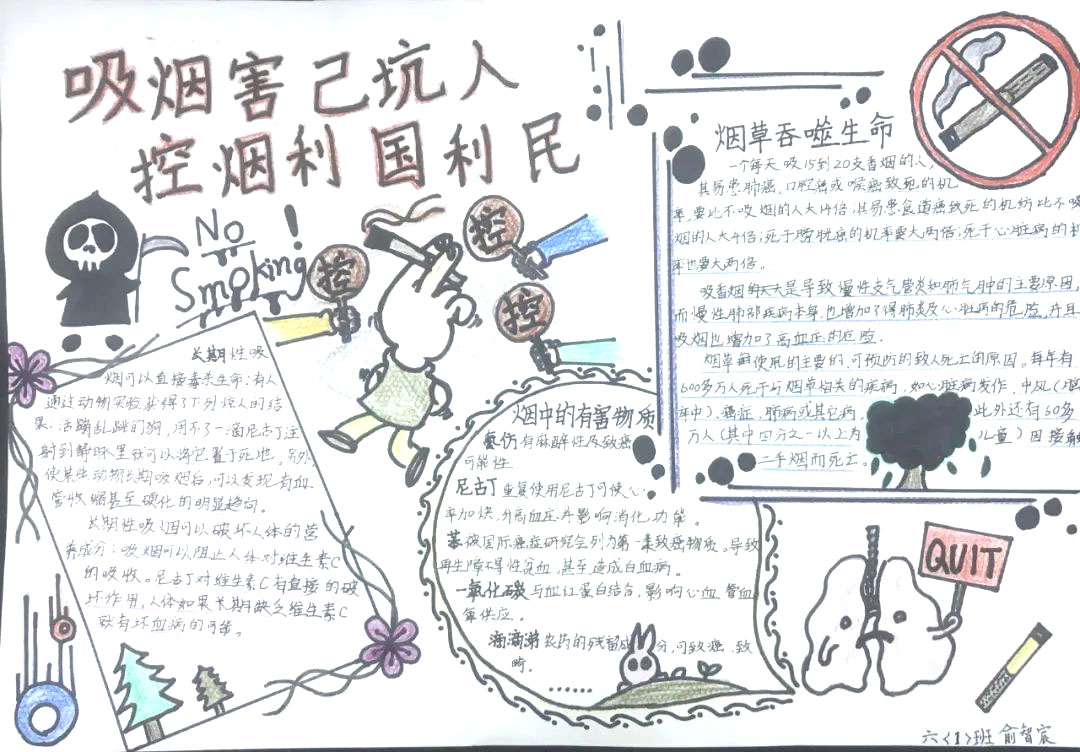 吸烟害己坑人
控烟利国利民
No
Smoking!
控
控
控
长期性吸
烟可以直接毒杀生命:有人
通过动物实验获得了下列惊人的结
果:活蹦乱跳的狗,用不了一滴尼古丁注
射到鲜味里就可以将它置于死地。另外,
使某生动物长期吸烟后,可以发现有血
管收缩甚至硬化的明显趋向。
长期性吸烟可以破坏人体的营
养成分:吸烟可以阻止人体对维生素C
的吸收。尼古丁对维生素C有直接的破
坏作用,人体如果长期缺乏维生素C
就有坏血病的可能。
烟中的有害物质
氨伤 有麻醉性及致癌
可能性
尼古丁 重复使用尼古丁可使心
率加快,升高血压并影响消化功能。
苯 被国际癌症研究会列为第一类致癌物质。导致
再生障碍性贫血,甚至造成白血病。
一氧化碳 与血红蛋白结合,影响心血管血
氧供应。
滴滴涕 农药的残留成分,可致癌、致
畸。
......
烟草吞噬生命
一个每天吸15到20支香烟的人,
其易患肺癌,口腔癌或喉癌致死的机
率,要比不吸烟的人大14倍;其易患食道癌致死的机纺比不吸
烟的人大4倍;死于膀胱癌的机率要大两倍;死于心脏病的机
率也要大两倍。
吸香烟的天天是导致慢性支气管炎和肺气肿的主要原因,
而慢性肺部疾病本身,也增加了得肺炎及心脏病的危险,并且
吸烟也增加了高血压的危险。
烟草制使用的主要的、可预防的致人死亡的原因。每年有
600多万人死于与烟草相关的疾病,如心脏病发作、中风(脑
卒中)、癌症、肺病或其它病,此外还有60多
万人(其中四分之一以上为儿童)因接触
二手烟而死亡。
QUIT
六<1>班 俞智宸